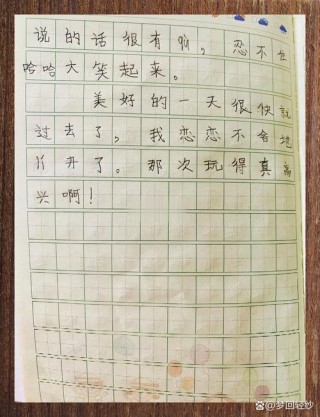 说的话很有，忍不住
哈哈大笑起来。
美好的一天很快就
过去了，我恋恋不舍地
开了。那次玩得真高
兴啊！